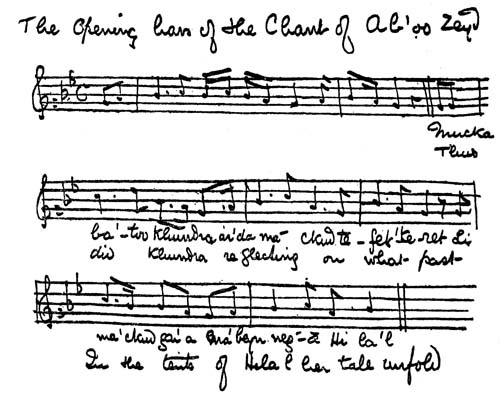 The Opening bars of the Chant of Ab'oo Zeyd
Mucka
Thus
ba'-too Khundra ai'da ma'- ckud te-fek'-ke-ret Li
did Khundra reflecting on what past-
ma'ckud gai'a bei neg'-'a Hi la'l
In the tents of Hilal her tale unfold